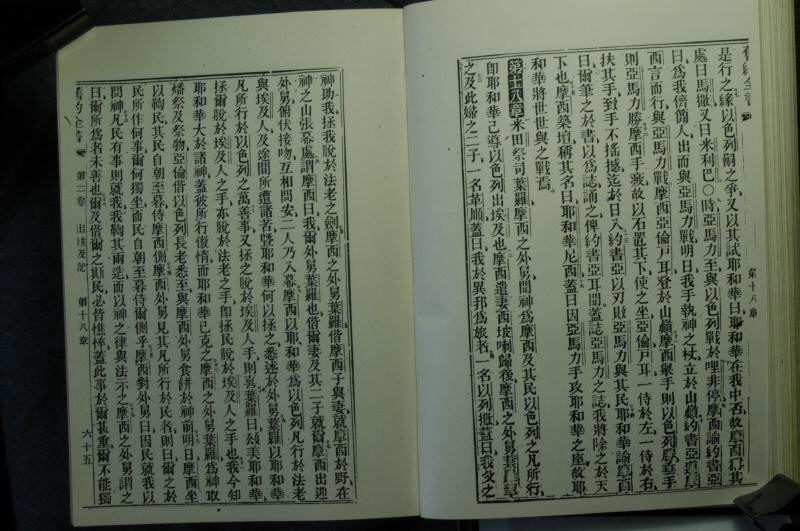 舊約全書
第十八章
是行之緣以色列嗣之爭又以其試耶和華曰耶和華在我中否故
處曰馬撒又曰米利巴○時亞馬力至與以色列戰於哩非停摩西諭約書亞
曰爲我儕簡人出而與亞馬力戰明日我手執神之杖立於山巔約書亞遵摩
西言而行與亞馬力戰摩西亞倫戶耳登於山巔摩西舉手則以色列勝垂手
則亞馬力勝摩西手疲故以石置其下使之坐亞倫戶耳一侍於左一侍於右
扶其手致手不搖撼迄於日入約書亞以刃敗亞馬力與其民耶和華諭摩西
曰爾筆之於書以爲誌誦之俾約書亞耳聞蓋誌亞馬力之誌我將除之於天
下也摩西築壇稱其名曰耶和華尼西蓋曰因亞馬力手攻耶和華之座故耶
和華將世世與之戰焉
第十八章米田祭司葉羅摩西之外舅聞神爲摩西及其民以色列之凡所行
卽耶和華已導以色列出埃及也摩西遣妻西坡喇歸後摩西之外舅葉羅
之及此婦之二子一名革順蓋曰我於異邦爲旅者一名以列撒蓋曰我父之
神助我拯我脫於法老之劍摩西之外舅葉羅偕摩西子與妻就摩西於野在
神之山張幕處謂摩西曰我爾外舅葉羅也偕爾妻及其二子就爾摩西出迎
外舅俯伏接吻互相問安二人乃入幕摩西以耶和華爲以色列凡行於法老
與埃及人及途間所遭諸苦曁耶和華何以拯之悉述於外舅葉羅以耶和華
凡所行於以色列之萬善事又拯之脫於埃及人手則喜葉羅曰頌美耶和華
拯爾脫於埃及人之手亦脫於法老之手卽拯民脫於埃及人之手也我今知
耶和華大於諸神蓋彼所行傲惰而耶和華已克之摩西之外舅葉羅爲神取
燔祭及祭物亞倫偕以色列長老悉至與摩西外舅食餅於神前明日摩西坐
以鞫民其民自朝至暮侍摩西側摩西外舅見其凡所行於民者則曰爾之於
民所作何事爾何獨坐而民自朝至暮侍爾側乎摩西對外舅曰因民就我以
問神凡民有事則就我我鞫其兩造而以神之律與法示之摩西之外舅謂之
曰爾所爲者未善也爾及偕爾之斯民必皆憔悴蓋此事於爾甚重爾不能獨
舊約全書 第二卷 出埃及記 第十八章 六十五